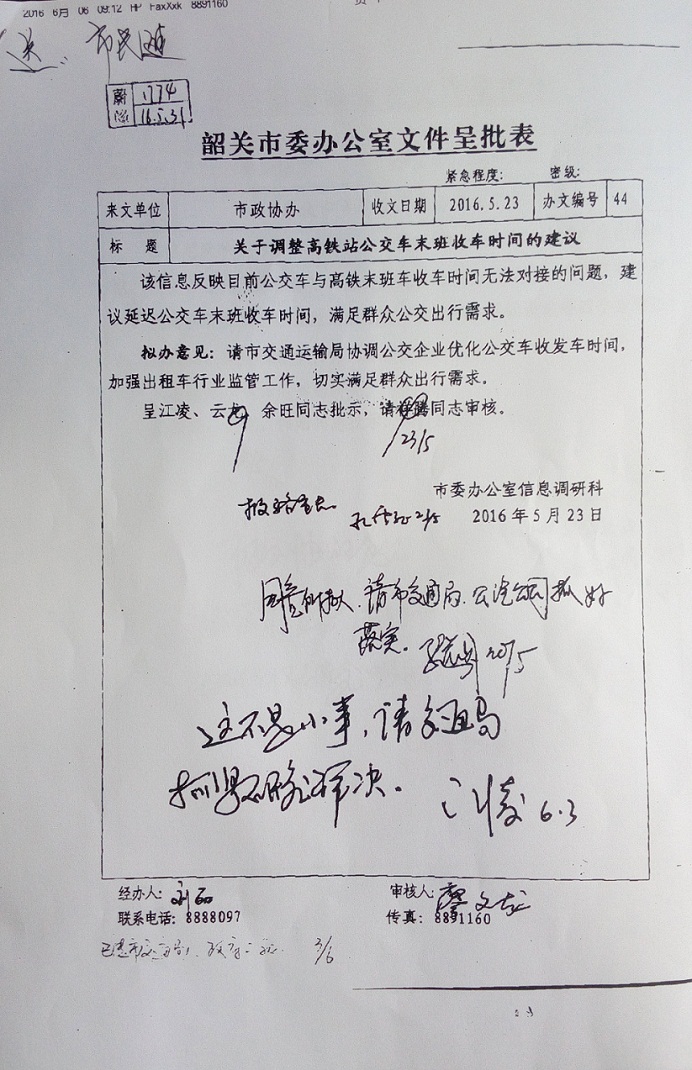 2016 6月 06 09:12 HP FaxXxk 8891160
送: 市民
1774
16.5.31
韶关市委办公室文件呈批表
紧急程度: 密级:
来文单位 市政协办 收文日期 2016.5.23 办文编号 44
标 题 关于调整高铁站公交车末班收车时间的建议
该信息反映目前公交车与高铁末班车收车时间无法对接的问题，建
议延迟公交车末班收车时间，满足群众公交出行需求。
拟办意见：请市交通运输局协调公交企业优化公交车收发车时间，
加强出租车行业监管工作，切实满足群众出行需求。
呈江凌、云 、余旺同志批示，请 同志审核。
23/5
市委办公室信息调研科
2016年5月23日
同意 拟，请市交通局、公汽公司抓好
落实。
这不是小事，请
抓紧 解决。 江凌 6.3
经办人: 审核人:
联系电话: 8888097 传真: 8891160
3/6